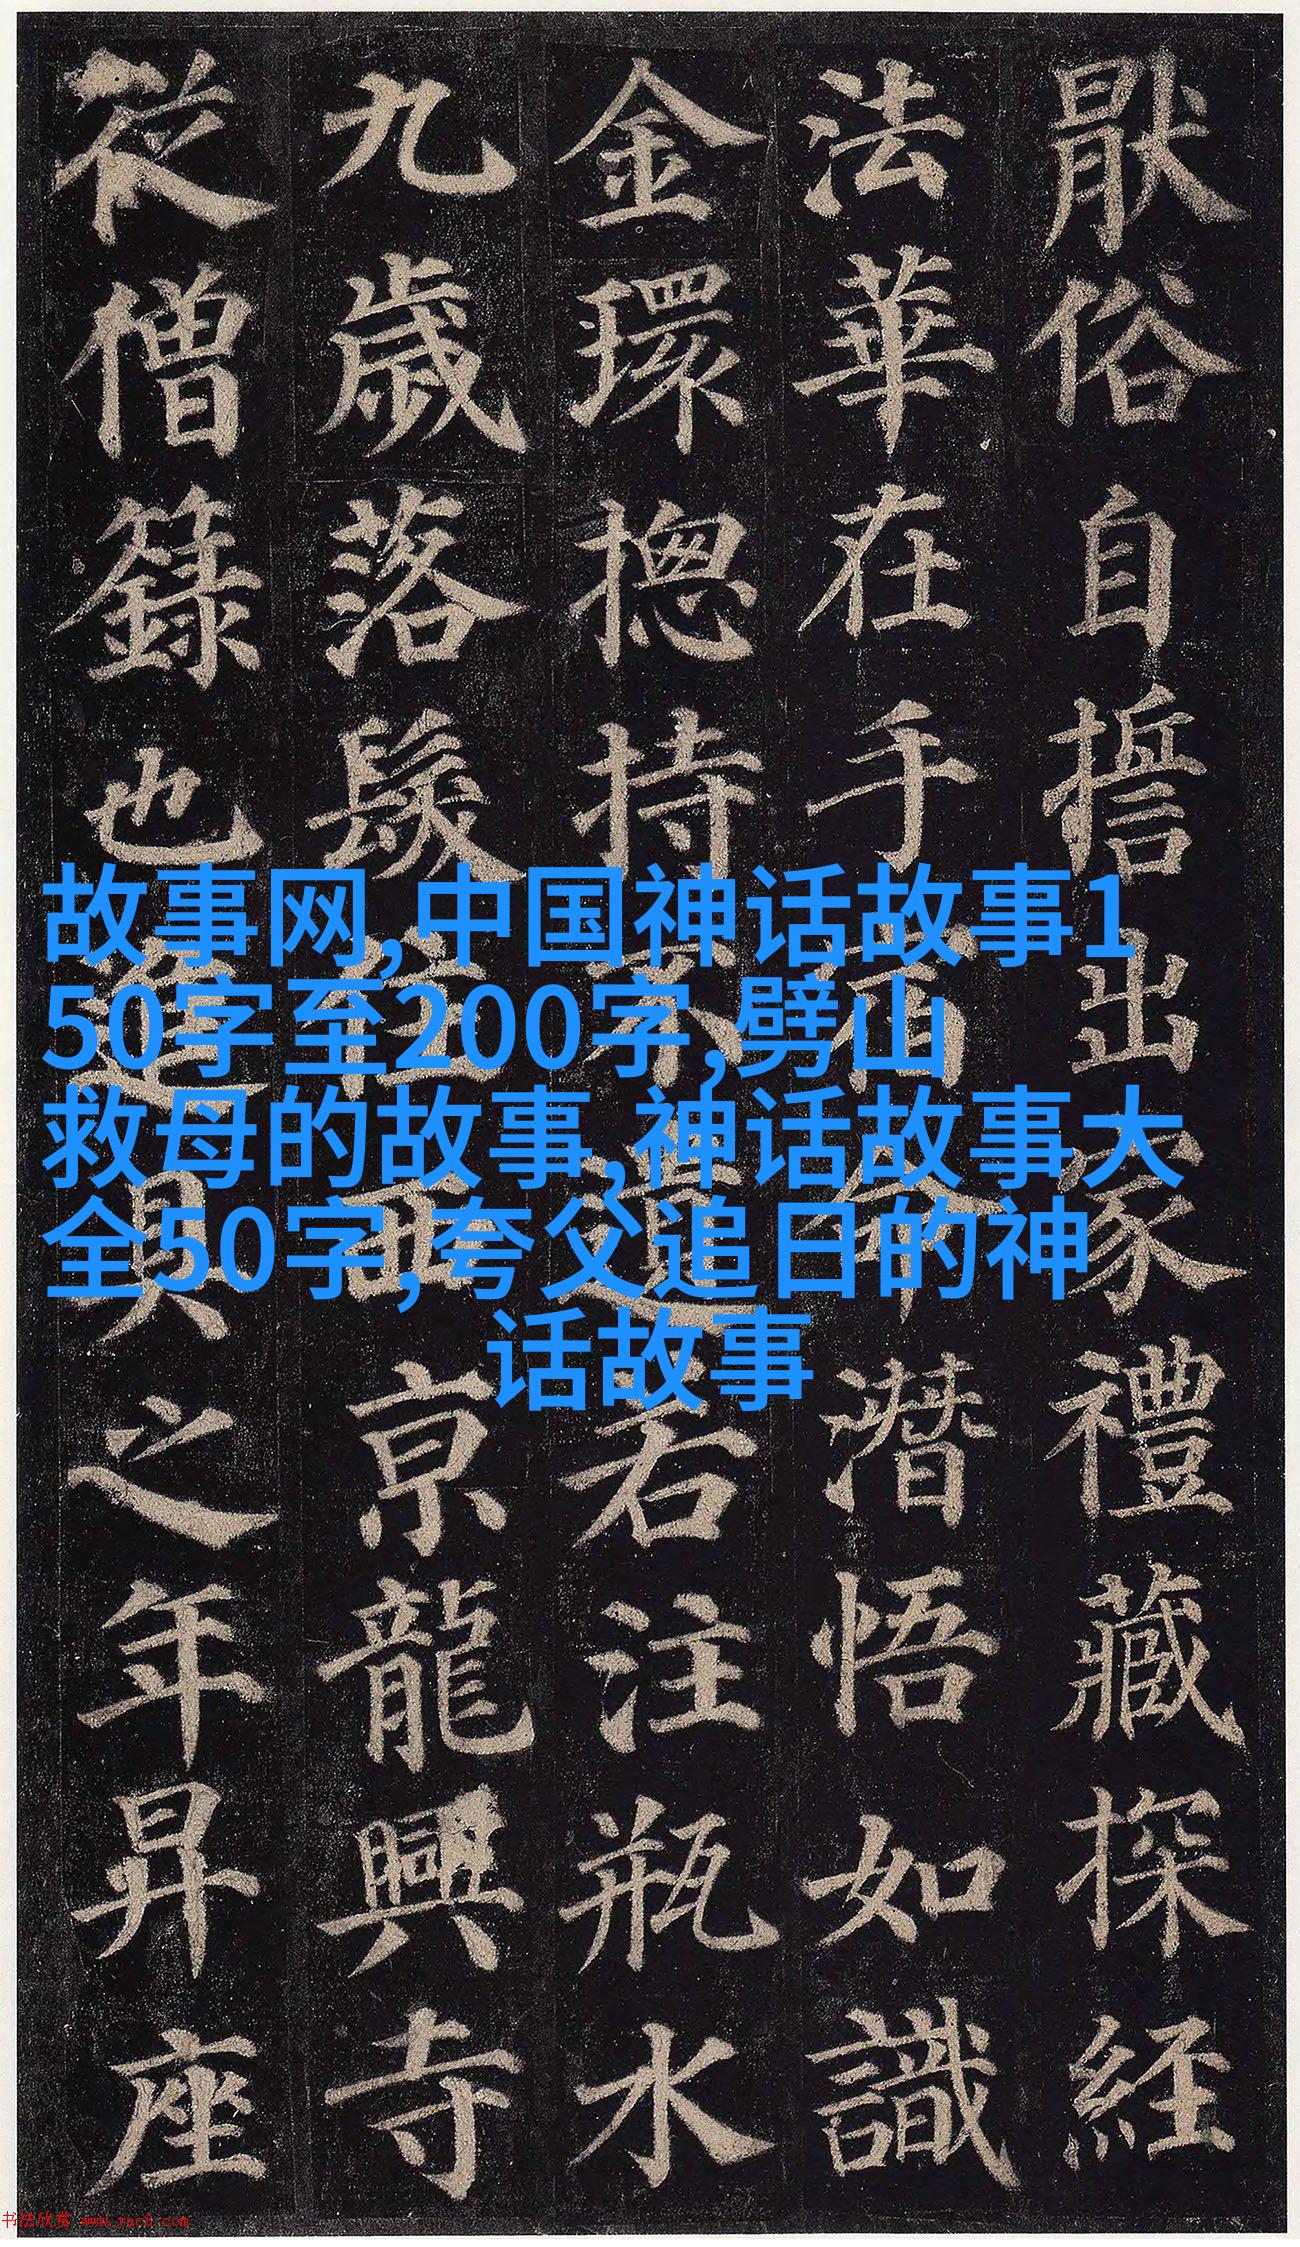 猒俗自誓出家禮藏探經
法華在手宿命潛悟如識
金環揔持不遺右注瓶水
九歲落髮住西京龍興寺
從僧籙也進具之年昇座
故事网,中国神话故事1
50字至200字,劈山
救母的故事,神话故事大
全50字,夸父追日的神
话故事
书法欣赏 www.yac8.com